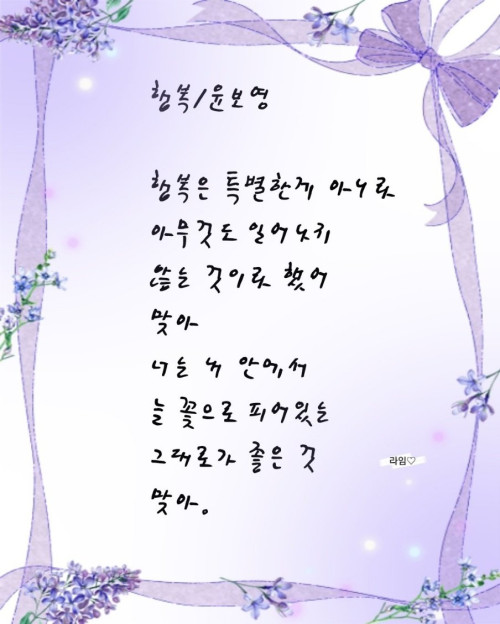 행복/윤보영
행복은 특별한게 아니라
아무것도 일어나지
않는 것이라 했어
맞아
너는 내 안에서
늘 꽃으로 피어있는
그대로가 좋은 것
맞아.
라임♡